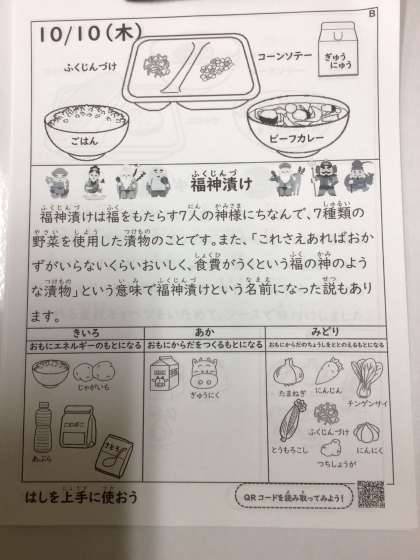 B
10/10(木)
ふくじんづけ
コーンソテー
ぎゅうにゅう
ごはん
ビーフカレー
福神漬け
福神漬けは福をもたらす7人の神様にちなんで、7種類の
野菜を使用した漬物のことです。また、「これさえあればおか
ずがいらないくらいおいしく、食費がうくという福の神のよう
な漬物」という意味で福神漬けという名前になった説もあり
ます。
きいろ
おもにエネルギーのもとになる
あか
おもにからだをつくるもとになる
みどり
おもにからだのちょうしをととのえるもとになる
じゃがいも
こむぎこ
あぶら
さとう
ぎゅうにく
たまねぎ
にんじん
チンゲンサイ
とうもろこし
ふくじんづけ
つちしょうが
にんにく
はしを上手に使おう
QRコードを読み取ってみよう!